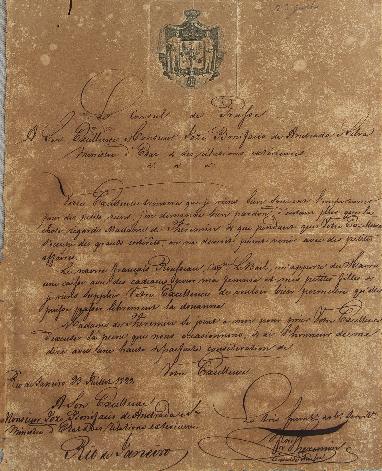 Le Consul de Prusse
A Son Excellence Monsieur José Bonifacio de Andrada e Silva
Ministre d'Etat & des relations extérieures
Votre Excellence trouvera que je viens bien souvent l'importuner
pour des petits riens, j'en demande bien pardon, d'autant plus que la
chose regarde Madame de Theremin et que pendant que Votre Excellence
s'occupe de grands intérêts, on ne devrait point venir avec des petites
affaires.
Le navire français Cap. apporte du Havre
une caisse avec des cadeaux pour ma femme et mes petites filles et
je viens supplier Votre Excellence de vouloir bien permettre qu'elle
puisse passer librement la douane.
Madame de Theremin se joint à moi pour prier Votre Excellence
d'excuser la peine que nous occasionnons, & j'ai l'honneur de me
dire avec une haute & parfaite considération de
Votre Excellence
Rio de Janeiro 23 1822
A Son Excellence
Monsieur José Bonifacio de Andrada e S.
Ministre d'Etat & des relations extérieures
Rio de Janeiro
Le très
Theremin